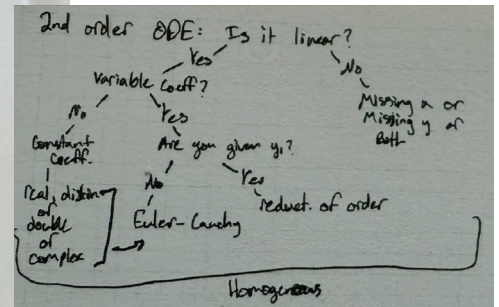 2nd order ODE: Is it linear?
Yes
No
Variable Coeff?
No
Yes
Missing x or
Missing y or
Both
Constant
Coeff.
Are you given y₁?
No
Yes
real, distinct
or
double
or
complex
Euler-Cauchy
reduct. of order
Homogeneous